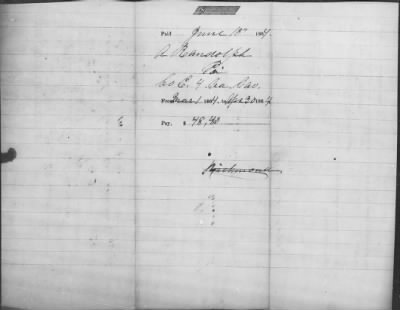 Paid June 18" 1864.
A Randolph
Co E. 4 Va Cav.
From Mar 1 1864, to Apr 30 1864
Pay. $ 48,40
Richmond